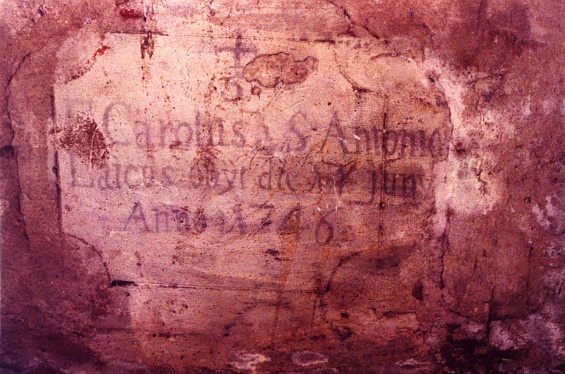 5.
F. Carolus à S. Antonio
Laicus obyt die 17 juny
Anno 1746.